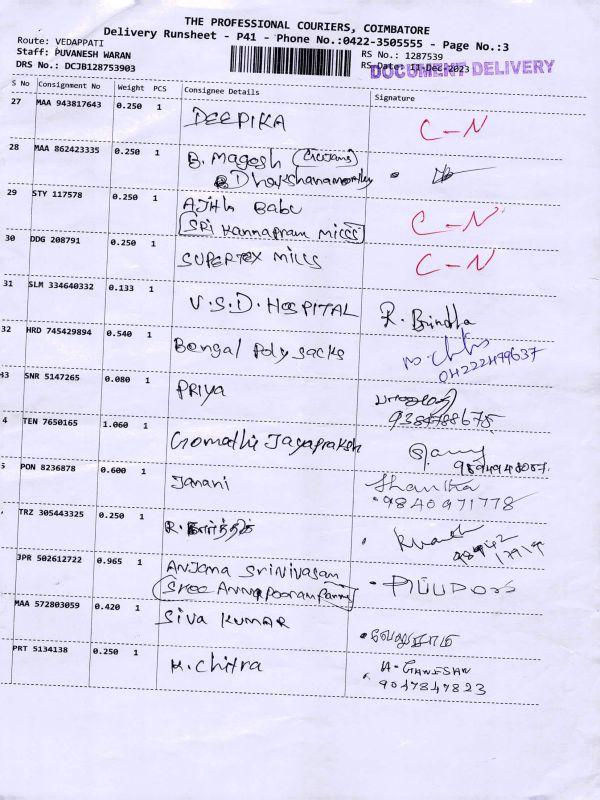 THE PROFESSIONAL COURIERS, COIMBATORE
Delivery Runsheet - P41 - Phone No.:0422-3505555 - Page No.:3
Route: VEDAPPATI
Staff: PUVANESH WARAN
DRS No.: DCJB128753903
RS No.: 1287539
RS Date: 11-Dec-2023
DOCUMENT DELIVERY
S No Consignment No Weight PCS Consignee Details Signature
27 MAA 943817643 0.250 1 DEEPIKA C-N
28 MAA 862423335 0.250 1 B. Magesh
Dhakshanamoorthy
29 STY 117578 0.250 1 AJith Babu C-N
SRI Kannapram MILLS
30 DDG 208791 0.250 1 SUPERTEX MILLS C-N
31 SLM 334640332 0.133 1 V.S.D. HOSPITAL R. Brindha
32 HRD 745429894 0.540 1 Bengal Poly sacks
04222499637
43 SNR 5147265 0.080 1 PRIYA
9384788675
4 TEN 7650165 1.060 1 Gomathi Jayapraksh
5 PON 8236878 0.600 1 Janani
9840971778
TRZ 305443325 0.250 1 R. கார்த்திக்
JPR 502612722 0.965 1 ANJANA SRINIVASAN
Sree Annapooram
MAA 572803059 0.420 1 SIVA KUMAR
PRT 5134138 0.250 1 K. Chitra A. GANESAN
9047847823